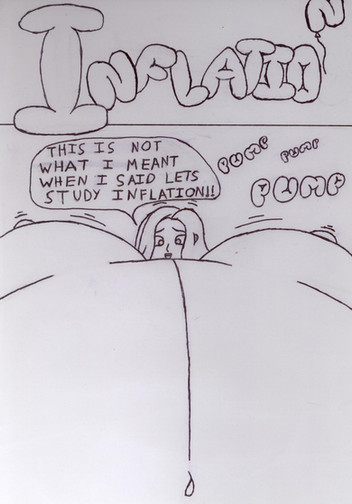 INFLATION
THIS IS NOT
WHAT I MEANT
WHEN I SAID LETS
STUDY INFLATION!!
PUMP
PUMP
PUMP